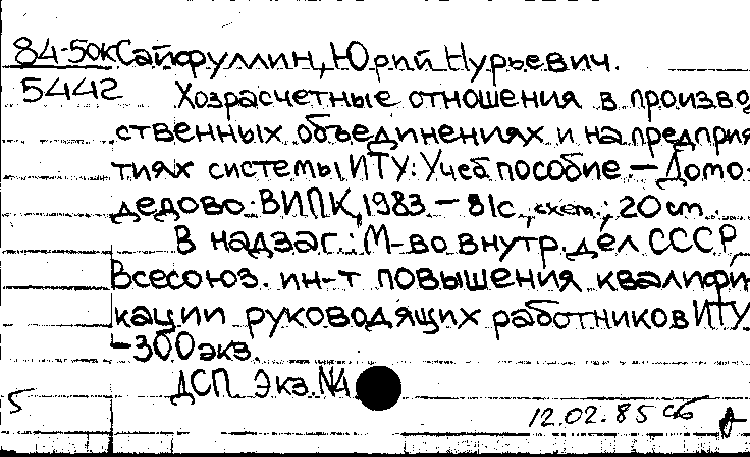 84-50к Сайфуллин, Юрий Нурьевич.
5442 Хозрасчетные отношения в произво
ственных объединениях и на предприя
тиях системы ИТУ: Учеб пособие — Домо-
дедово: ВИПК, 1983 — 81с., схем.; 20 см.
В надзаг.: М-во внутр. дел СССР,
Всесоюз. ин-т повышения квалифи
кации руководящих работников ИТУ
-300 экз.
ДСП. Экз. №4
5
12.02.85